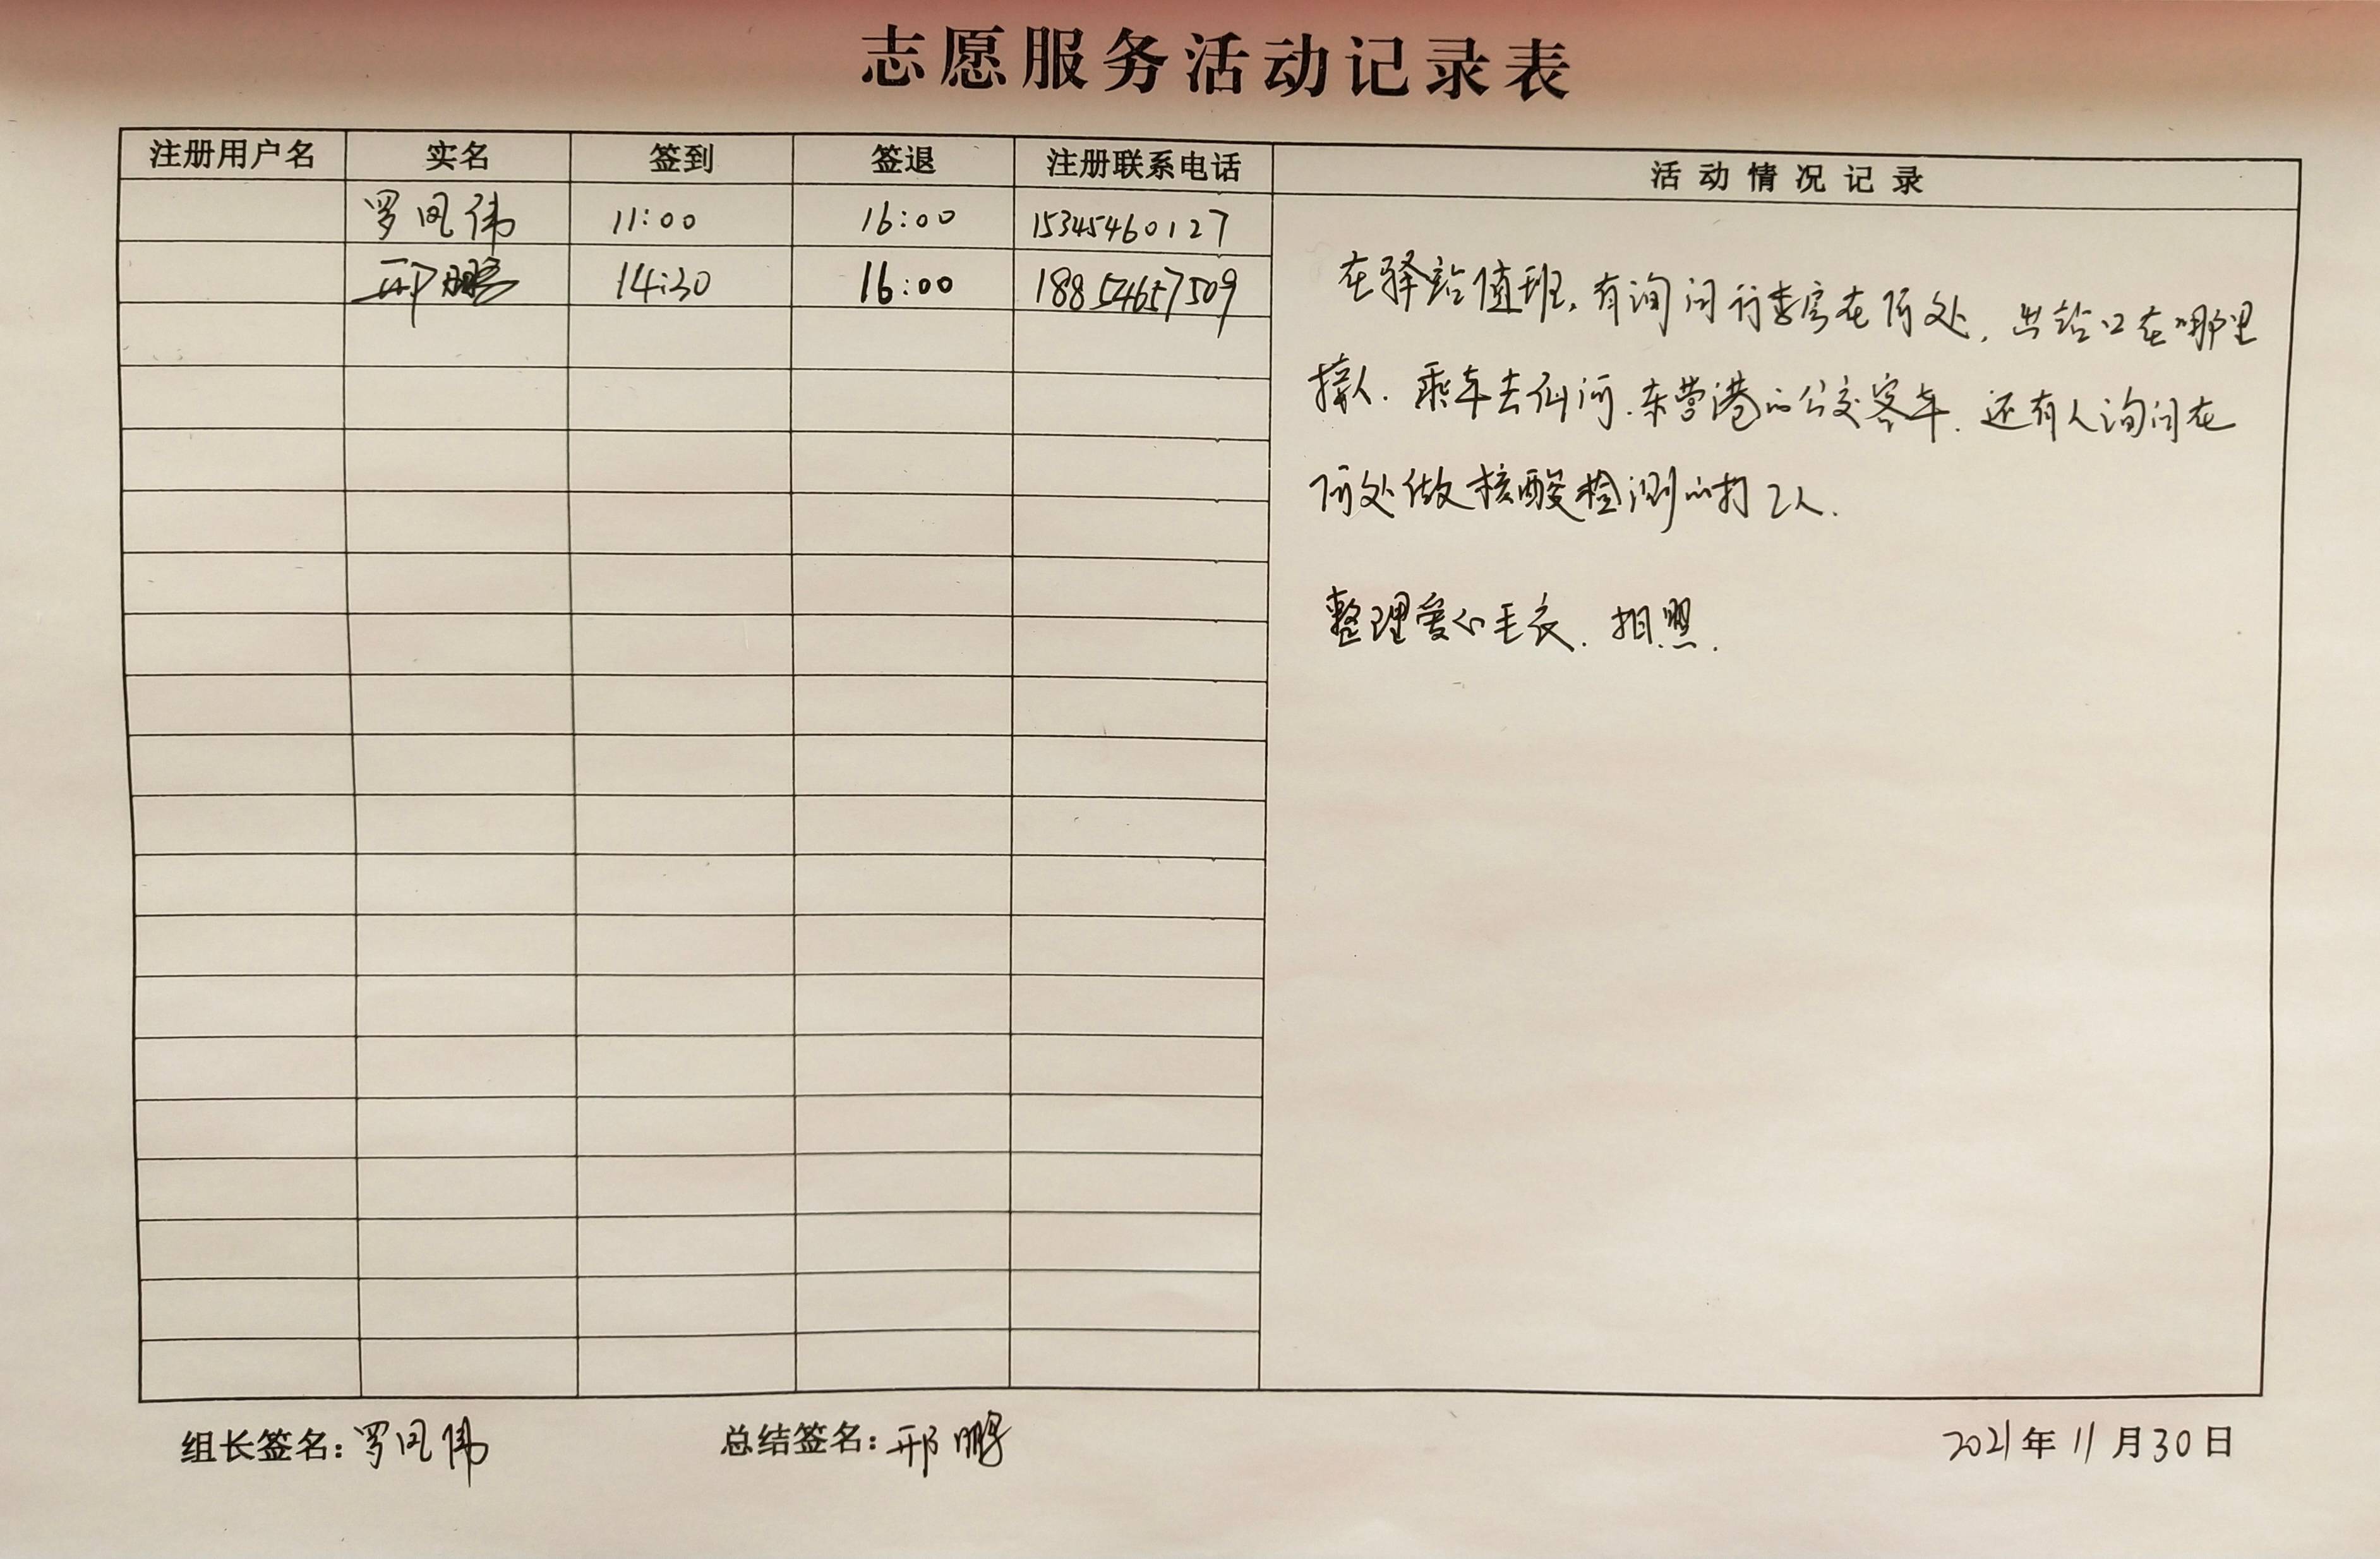 志愿服务活动记录表
注册用户名 实名 签到 签退 注册联系电话 活动情况记录
罗凤伟 11:00 16:00 15345460127
邢鹏 14:30 16:00 18854657509
在驿站值班,有询问行李房在何处,出站口在哪里
接人.乘车去仙河.东营港的公交客车.还有人询问在
何处做核酸检测的打2人.
整理爱心毛衣.拍照.
组长签名:罗凤伟 总结签名:邢鹏 2021年11月30日